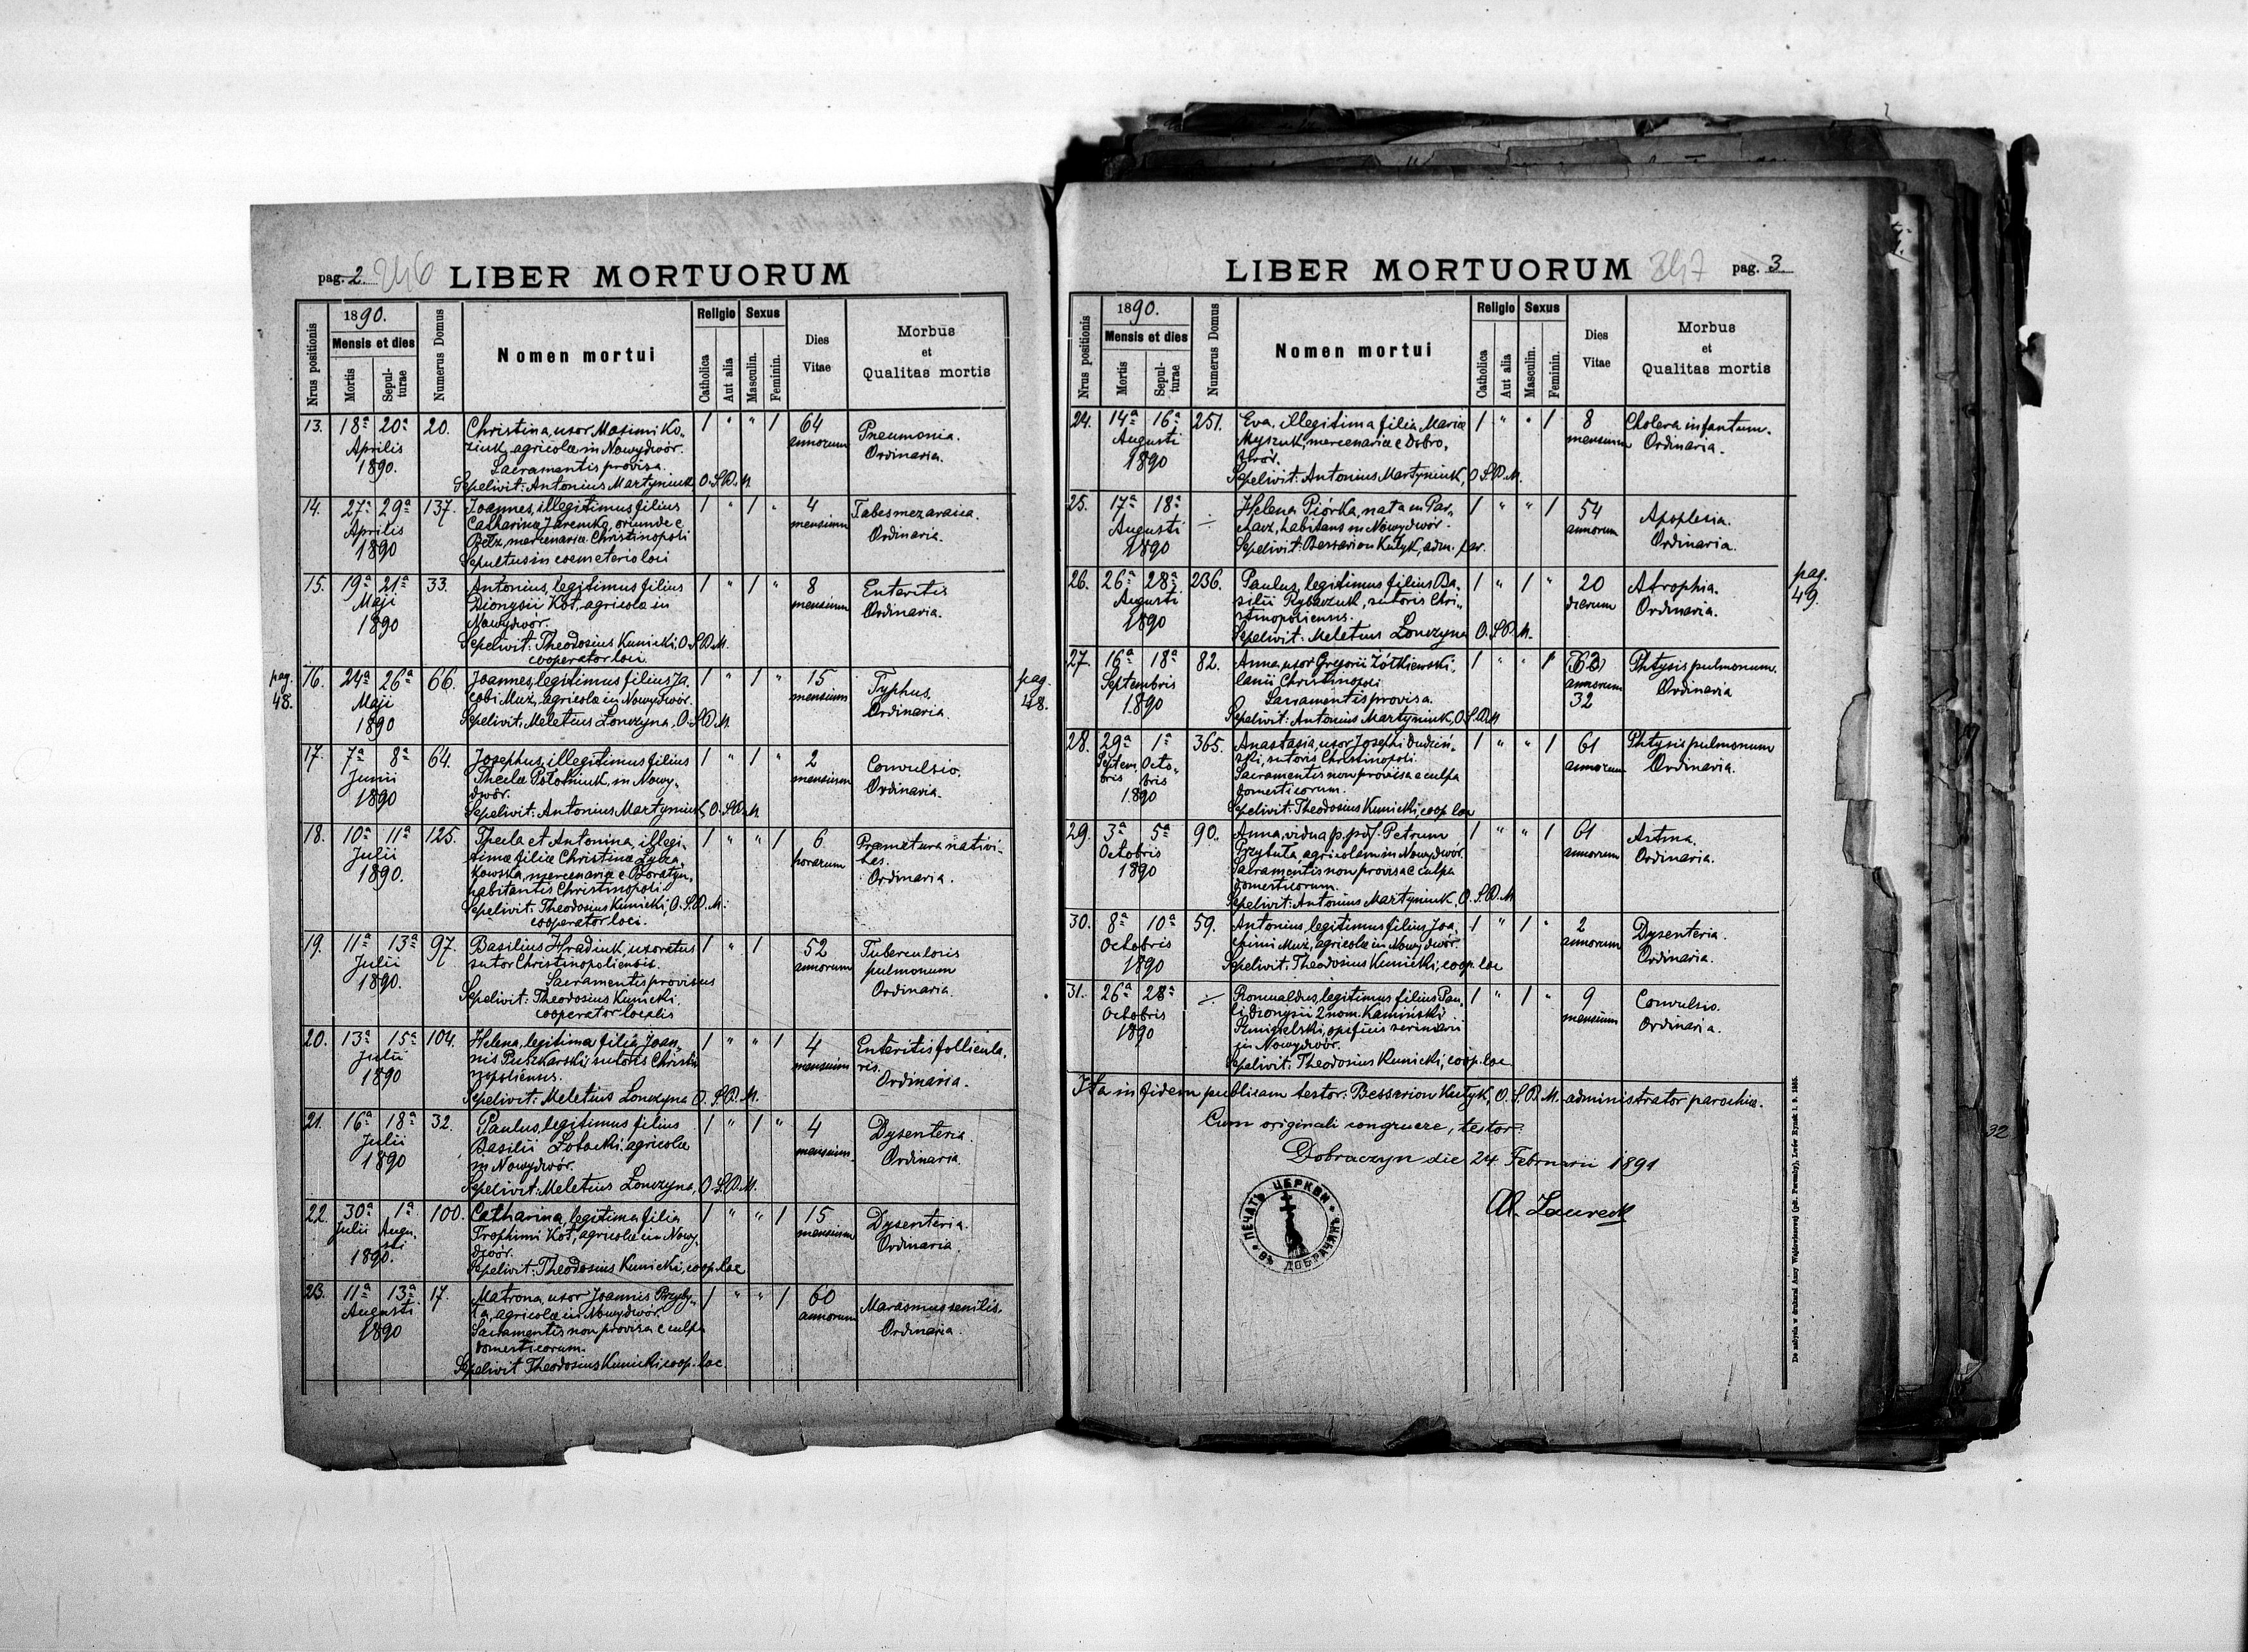 pag. 2 246
LIBER MORTUORUM
Nrus positionis
1890.
Mensis et dies
Mortis
Sepulturae
Numerus Domus
Nomen mortui
Religio
Catholica
Aut alia
Sexus
Masculin.
Feminin.
Dies
Vitae
Morbus
et
Qualitas mortis
13. 18ª 20ª 20. Christina, uxor Maximi Ko„ 1 " " 1 64 Pneumonia.
Aprilis ziuk, agricolæ in Nowydwór. annorum Ordinaria.
1890. Sacramentis provisa.
Sepelivit: Antonius Martyniuk, O.S.B.M.
14. 27ª 29ª 137. Joannes, illegitimus filius 1 " 1 " 4 Tabes mezaraica.
Aprilis Catharinæ Jaremko, oriundæ e mensium Ordinaria.
1890 Bełz, mercenariæ Christinopoli
Sepultus in coemeterio loci
15. 19ª 21ª 33. Antonius, legitimus filius 1 " 1 " 8 Enteritis
Maji Dionysii Kot, agricolæ in mensium Ordinaria.
1890 Nowydwór.
Sepelivit: Theodosius Kunicki, O.S.B.M.
cooperator loci
pag. 48.
16. 24ª 26ª 66. Joannes, legitimus filius Ja 1 " 1 " 15 Typhus.
Maji cobi Muż, agricolæ in Nowydwór. mensium Ordinaria.
1890 Sepelivit: Meletius Łonczyna, O.S.B.M.
pag. 48.
17. 7ª 8ª 64. Josephus, illegitimus filius 1 " 1 " 2 Convulsio.
Junii Theclæ in Nowy„ mensium Ordinaria.
1890 dwór.
Sepelivit: Antonius Martyniuk, O.S.B.M
18. 10ª 11ª 125. Thecla et Antonina, illegi„ 1 " " 1 6 Præmatura nativi„
Julii timæ filiæ Christinæ horarum tas.
1890. kowska, mercenariæ e Boratyn, Ordinaria.
habitantis Christinopoli
Sepelivit: Theodosius Kunicki, O.S.B.M.
cooperator loci.
19. 11ª 13ª 97. Basilius Hradiuk, uxoratus 1 " 1 52 Tuberculosis
Julii sutor Christinopoliensis. annorum pulmonum
1890. Sacramentis provisus Ordinaria
Sepelivit: Theodosius Kunicki
cooperator localis
20. 13ª 15ª 104. Helena, legitima filia Joan„ 1 " " 1 4 Enteritis follicula„
Julii nis Puszkarski, sutoris Christi mensium ris.
1890 nopoliensis. Ordinaria.
Sepelivit: Meletius Łonczyna O.S.B.M.
21. 16ª 18ª 32. Paulus, legitimus filius 1 " 1 " 4 Dysenteria.
Julii Basilii agricolæ mensium. Ordinaria.
1890 in Nowydwór.
Sepelivit: Meletius Łonczyna, O.S.B.M.
22. 30ª 1ª 100. Catharina, legitima filia 1 " " 1 15 Dysenteria.
Julii Augu„ Trophimi Kot, agricolæ in Nowy„ mensium Ordinaria.
sti dwór.
1890. Sepelivit: Theodosius Kunicki, coop. loc
23. 11ª 13ª 17. Matrona, uxor Joannis Przyby„ 1 " " 1 60 Marasmus senilis.
Augusti ta, agricolæ in Nowydwór. annorum Ordinaria.
1890 Sacramentis non provisa e culpa
domesticorum.
Sepelivit Theodosius Kunicki coop. loc
LIBER MORTUORUM
247 pag. 3
Nrus positionis
1890.
Mensis et dies
Mortis
Sepulturae
Numerus Domus
Nomen mortui
Religio
Catholica
Aut alia
Sexus
Masculin.
Feminin.
Dies
Vitae
Morbus
et
Qualitas mortis
24. 14ª 16ª 251. Eva, illegitima filia Mariæ 1 " " 1 8 Cholera infantum.
Augusti Myszuk, mercenariæ e Dobro„ mensium Ordinaria.
1890 twór.
Sepelivit: Antonius Martyniuk, O.S.B.M.
25. 17ª 18ª Helena Piórka, nata in Par„ 1 " " 1 54 Apoplexia.
Augusti chacz, habitans in Nowydwór. annorum Ordinaria.
1890 Sepelivit: Bessarion Kułyk, adm. par.
26. 26ª 28ª 236. Paulus, legitimus filius Ba„ 1 " 1 " 20 Atrophia.
Augusti silii Rybaczuk, sutoris Chri„ dierum Ordinaria.
1890 stinopoliensis.
Sepelivit: Meletius Łonczyna O.S.B.M.
pag. 49.
27. 16ª 18ª 82. Anna, uxor Gregorii Żółkiewski, 1 " " 1 63 Phtysis pulmonum.
Septembris lanii Christinopoli annorum Ordinaria
1890 Sacramentis provisa. 32
Sepelivit: Antonius Martyniuk, O.S.B.M
28. 29ª 1ª 365. Anastasia, uxor Josephi Dudziń„ 1 " " 1 61 Phtysis pulmonum
Septem Octo„ ski, sutoris Christinopoli. annorum Ordinaria.
bris bris Sacramentis non provisa e culpa
1890 domesticorum.
Sepelivit: Theodosius Kunicki, coop loc
29. 3ª 5ª 90. Anna, vidua p. def. Petrum 1 " " 1 61 Astma.
Octobris Przybyta, agricolam in Nowydwór. annorum Ordinaria.
1890 Sacramentis non provisa e culpa
domesticorum.
Sepelivit: Antonius Martyniuk, O.S.B.M
30. 8ª 10ª 59. Antonius, legitimus filius Joa„ 1 " 1 " 2 Dysenteria.
Octobris chimi Muż, agricolæ in Nowydwór. annorum Ordinaria.
1890 Sepelivit: Theodosius Kunicki, coop. loc
31. 26ª 28ª Romualdus, legitimus filius Pau„ 1 " 1 " 9 Convulsio.
Octobris li Dionysii 2 nom. Kamiński mensium Ordinaria.
1890 opificis scriniarii
in Nowydwór.
Sepelivit: Theodosius Kunicki, coop. loc
Ita in fidem publicam testor: Bessarion Kułyk, O.S.B.M. administrator parochiæ.
Cum originali congruere, testor:
Dobraczyn die 24 Februarii 1891
Al. Laurecki
ПЕЧАТЬ ЦЕРКВИ ВЪ ДОБРАЧИНѢ
32